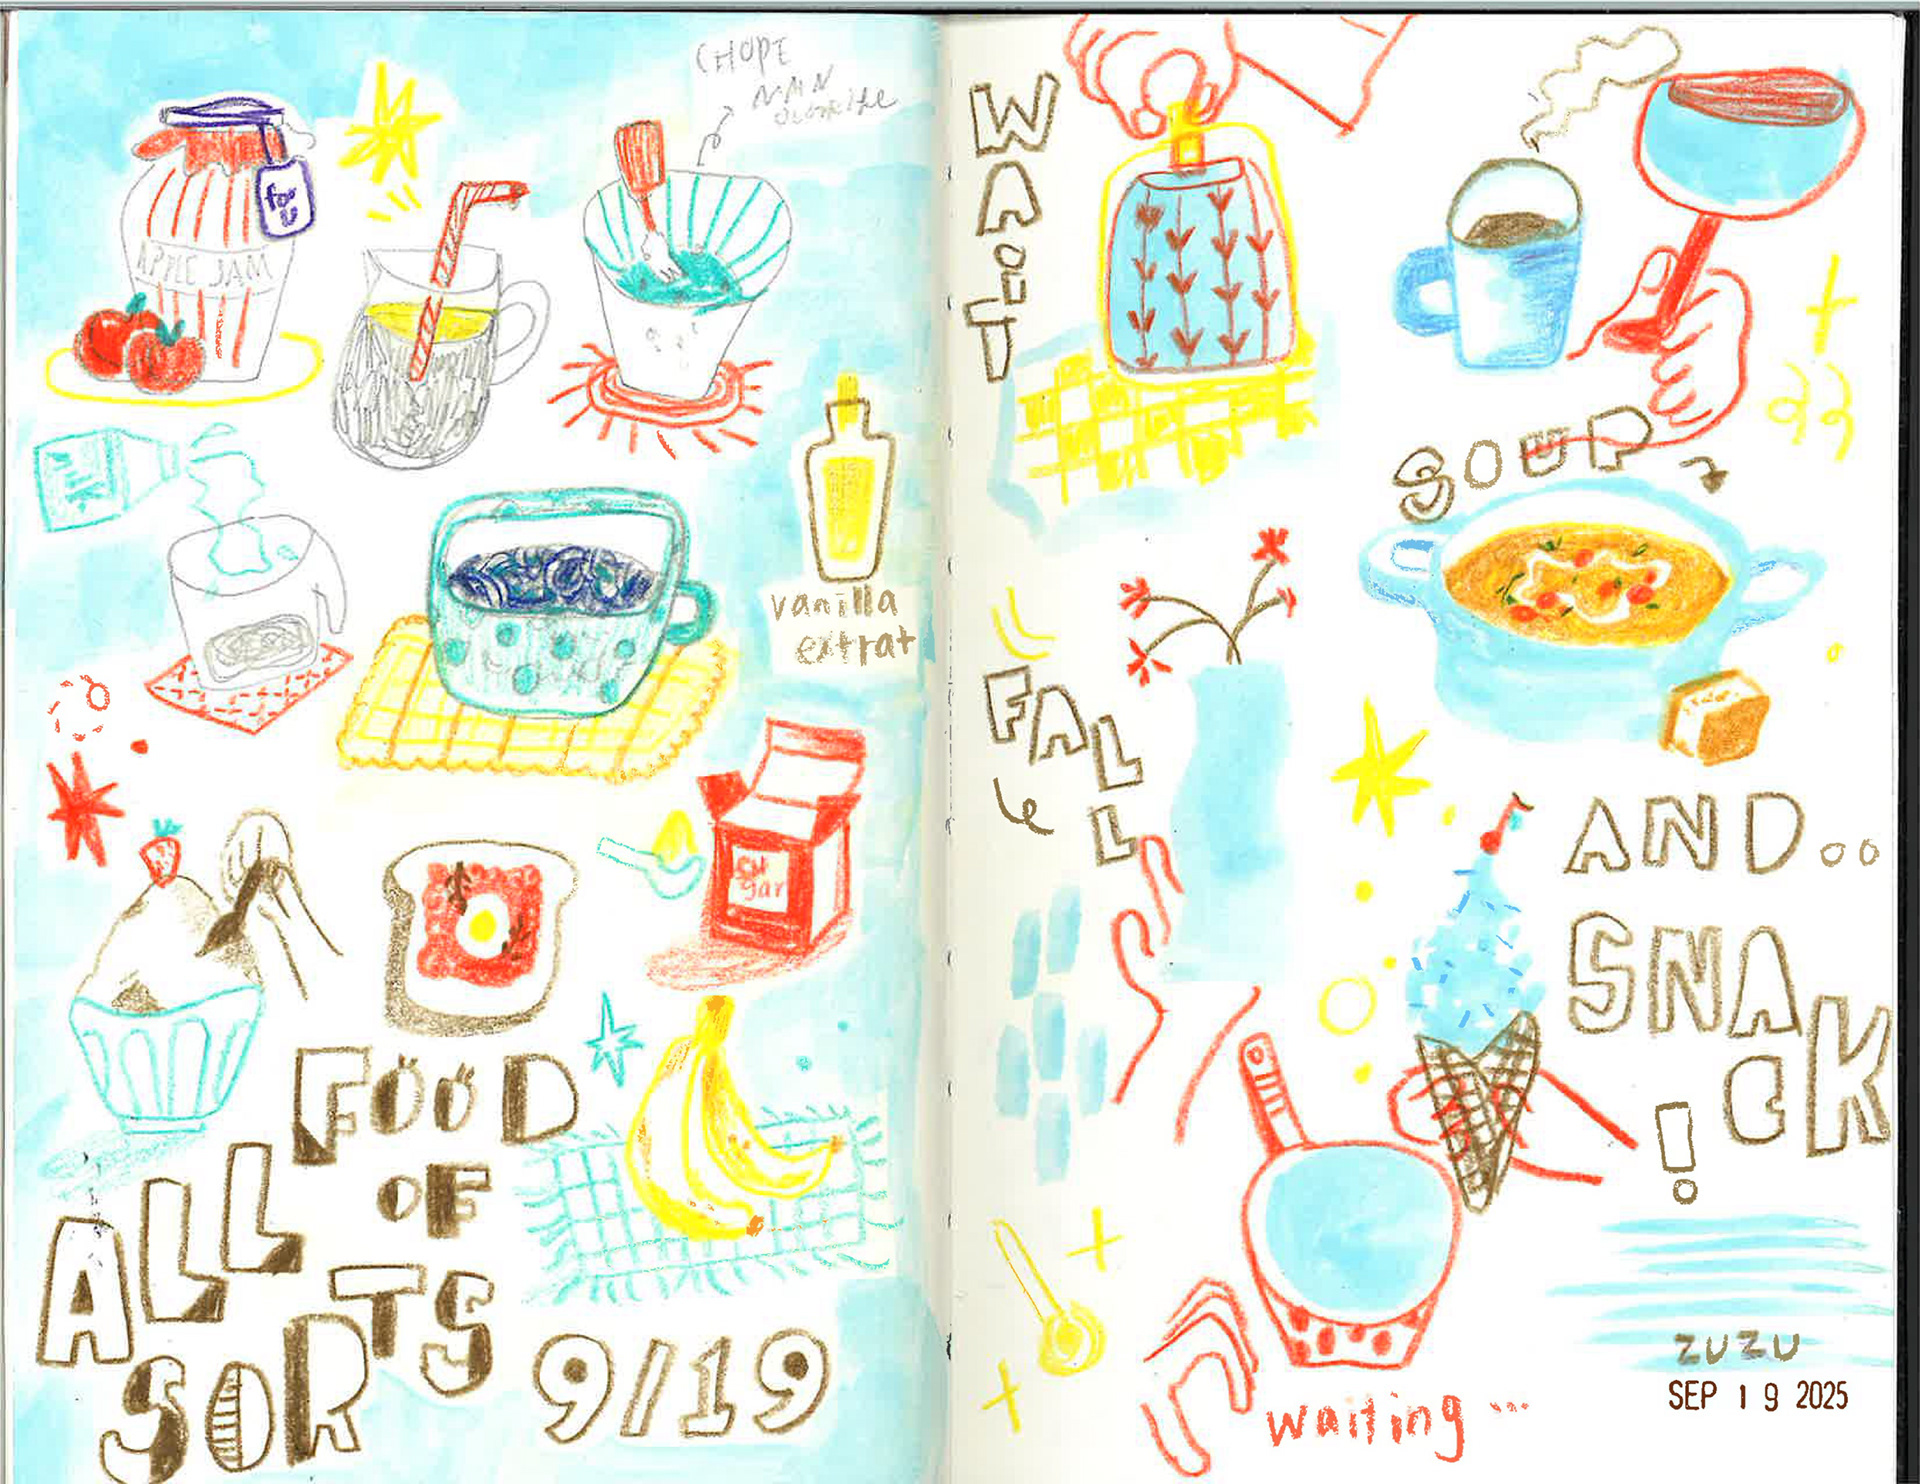 for
U
APPLE JAM
vanilla
extrat
su
gar
FOOD
OF
ALL
SORTS
9/19
WAiT
SOUP
FALL
AND..
SNACK
!
waiting...
ZUZU
SEP 19 2025